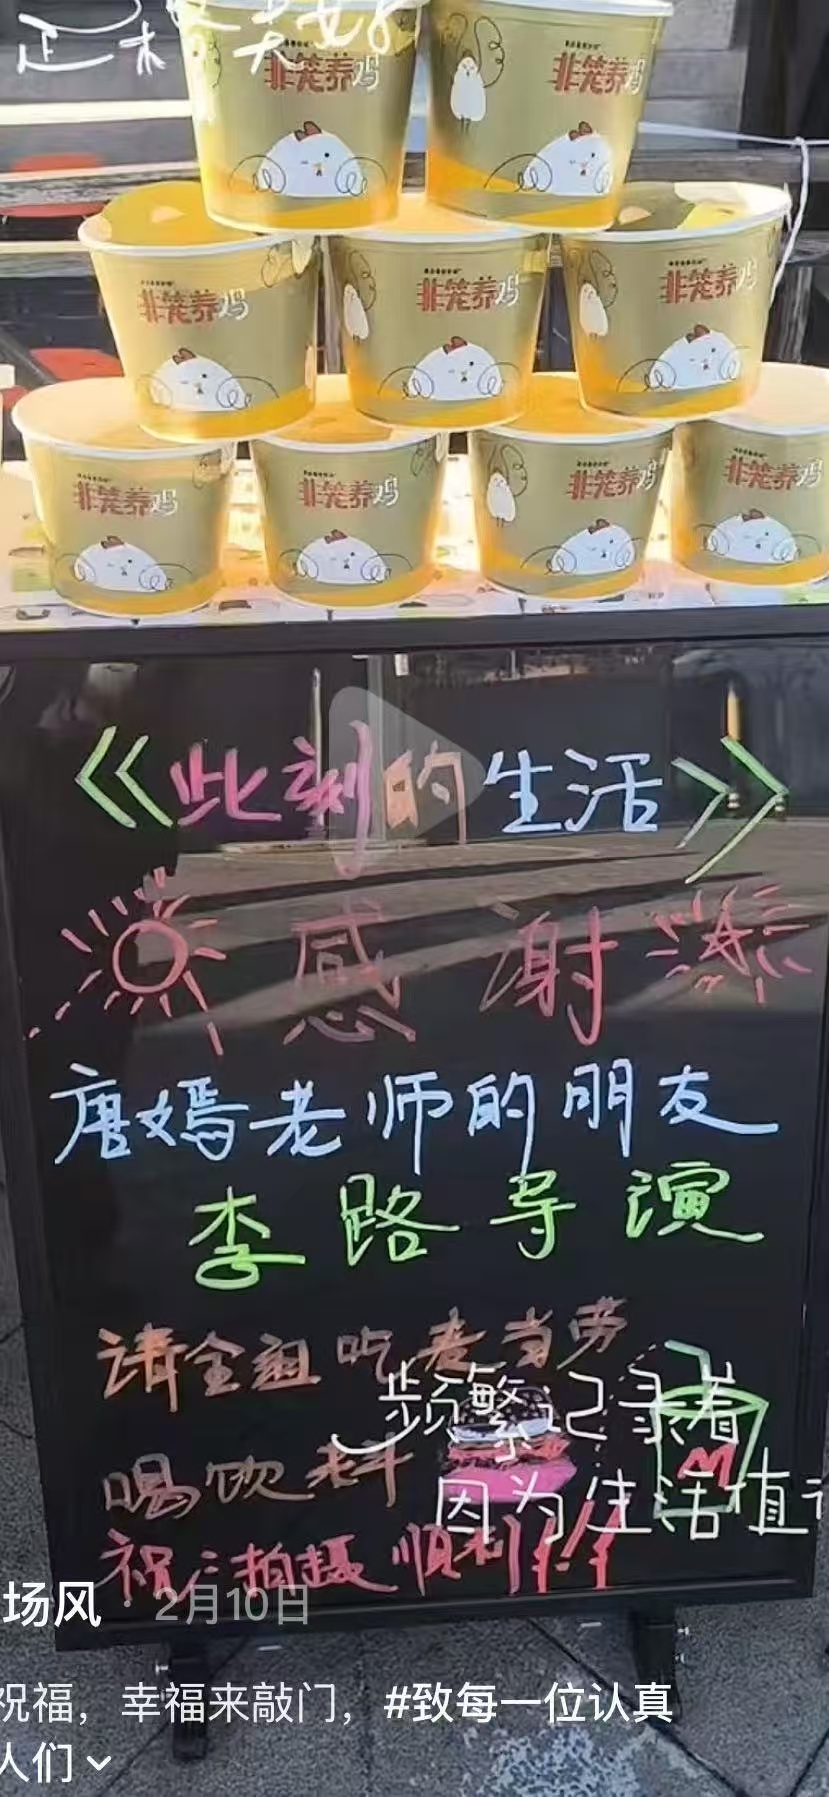 非笼养鸡 非笼养鸡
非笼养鸡 非笼养鸡 非笼养鸡
非笼养鸡 非笼养鸡 非笼养鸡 非笼养鸡
《此刻的生活》
感谢
唐嫣老师的朋友
李路导演
请全组吃麦当劳
频繁记录着
喝饮料
因为生活值
祝:拍摄顺利!!!
场风 · 2月10日
祝福，幸福来敲门，#致每一位认真
人们